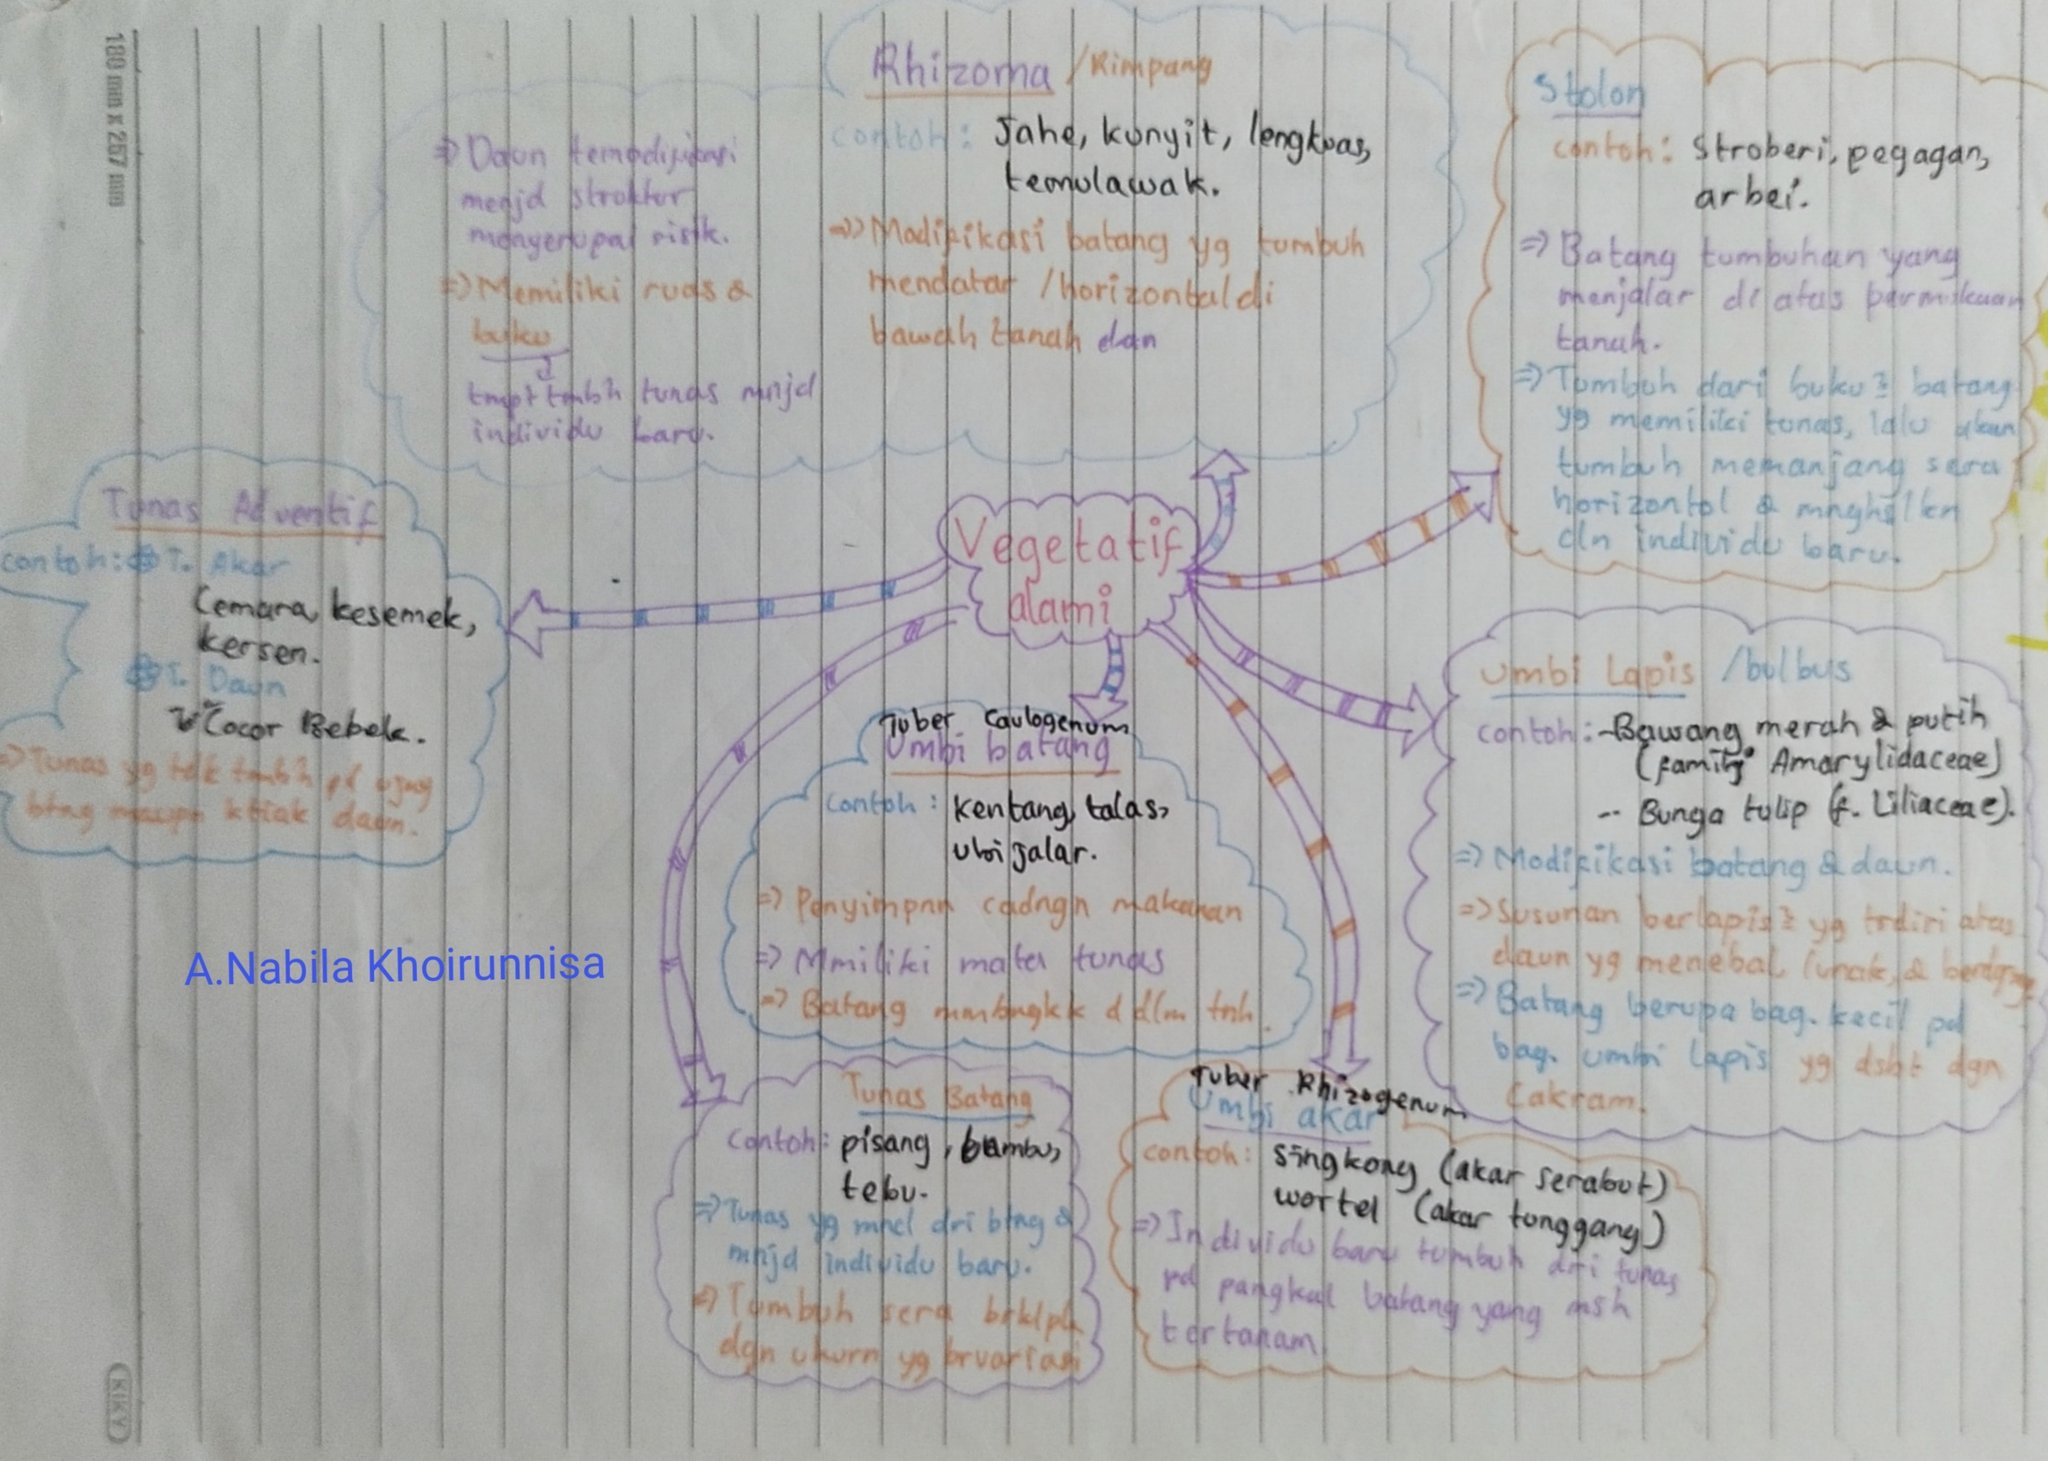 180 mm x 257 mm
Rhizoma / Rimpang
contoh: Jahe, kunyit, lengkuas,
temulawak.
=>> Modifikasi batang yg tumbuh
mendatar / horizontal di
bawah tanah dan
=> Daun temodifikasi
menjd struktur
menyerupai sisik.
=> Memiliki ruas &
buku
tmpt tmbh tunas mnjd
individu baru.
Stolon
contoh: Stroberi, pegagan,
arbei.
=> Batang tumbuhan yang
menjalar di atas permukaan
tanah.
=> Tumbuh dari buku2 batang
yg memiliki tunas, lalu akan
tumbuh memanjang sera
horizontal & mnghslkn
cln individu baru.
Vegetatif
alami
Tunas Adventif
contoh: T. Akar
Cemara, kesemek,
kersen.
T. Daun
Cocor Bebek.
=> Tunas yg tdk tmbh pd ujung
btng maupn ktiak daun.
Umbi Lapis / bulbus
contoh: - Bawang merah & putih
(family Amarylidaceae)
-- Bunga tulip (f. Liliaceae).
=> Modifikasi batang & daun.
=> Susunan berlapis2 yg trdiri atas
daun yg menebal, lunak, &
=> Batang berupa bag. kecil pd
bag. umbi lapis yg dsbt dgn
Cakram.
Tuber Caulogenum
Umbi batang
contoh: kentang, talas,
ubi jalar.
=> Penyimpnn cadngn makanan
=> Mmiliki mata tunas
=> Batang mmbngkk d dlm tnh.
A.Nabila Khoirunnisa
Tunas Batang
contoh: pisang, bambu,
tebu.
=> Tunas yg mncl dri btng &
mnjd individu baru.
=> Tumbuh sera brklpk
dgn ukurn yg brvariasi
Tuber Rhizogenum
Umbi akar
contoh: singkong (akar serabut)
wortel (akar tunggang)
=> Individu baru tumbuh dri tunas
pd pangkal batang yang msh
tertanam.
KIKY